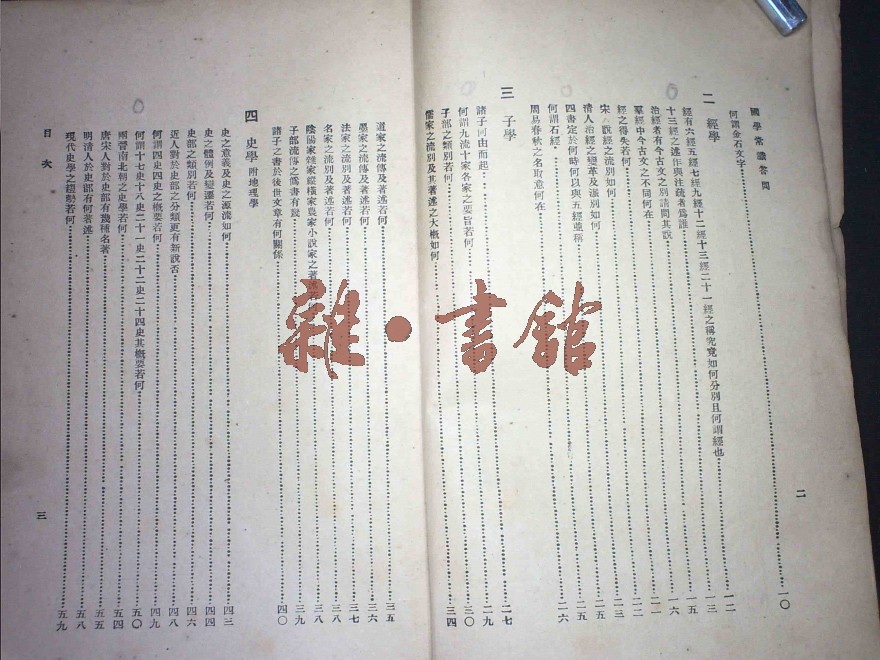 二
國學常識答問
何謂金石文字……一〇
二 經學
經有六經五經七經九經十二經十三經二十一經之稱究竟如何分別且何謂經也……一二
十三經之述作與注疏者爲誰……一三
治經者有今古文之別請問其說……一五
羣經中今古文之不同何在……一六
經之得失若何……二一
宋人說經之流別如何……二二
清人治經之變革及派別如何……二三
四書定於何時何以與五經並稱……二五
何謂石經……二五
周易春秋之名取意何在……二六
三 子學
諸子何由而起……二七
何謂九流十家各家之要旨若何……二九
子部之類別若何……三〇
儒家之流別及其著述之大概如何……三四
道家之流傳及著述若何……三五
墨家之流傳及著述若何……三六
法家之流別及著述若何……三七
名家之流別及著述若何……三八
陰陽家雜家縱橫家農家小說家之著述若何……三八
子部流傳之僞書有幾……三九
諸子之書於後世文章有何關係……四〇
四 史學 附地理學
史之意義及史之源流如何……四三
史之體例及變遷若何……四四
史部之類別若何……四六
近人對於史部之分類更有新說否……四八
何謂四史四史之概要若何……四九
何謂十七史十八史二十一史二十二史二十四史其概要若何……五〇
兩晉南北朝之史學若何……五四
唐宋人對於史部有幾種名著……五五
明清人於史部有何著述……五八
現代史學之趨勢若何……五九
目次
三
雜·書館